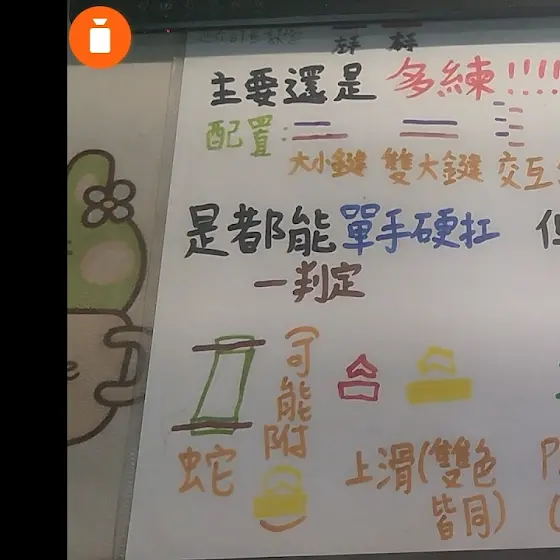 左手 右手
主要還是 多練!!!!
配置:
大小鍵 雙大鍵 交互
是都能單手硬扛 但
一判定
(可能附)
蛇
上滑(雙色皆同)